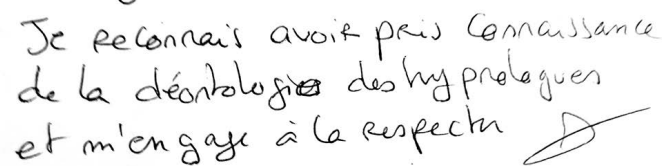 Je reconnais avoir pris connaissance
de la déontologie des hypnologues
et m'engage à la respecter